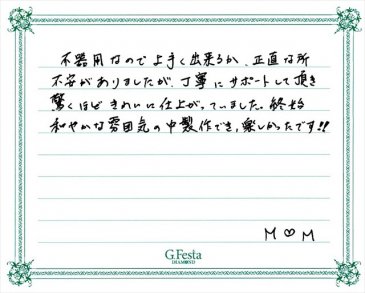 不器用なので上手く出来るか、正直な所
不安がありましたが、丁寧にサポートして頂き
驚くほどきれいに仕上がっていました。終始
和やかな雰囲気の中製作でき、楽しかったです!!
M♡M
G.Festa
DIAMOND